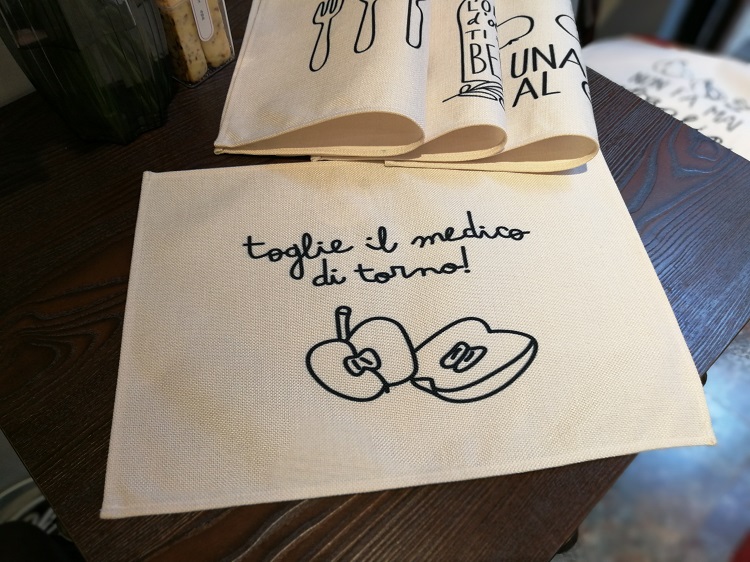 L'O
d'O
TI
BE
UNA
AL
toglie il medico
di torno!
NON FA MAI